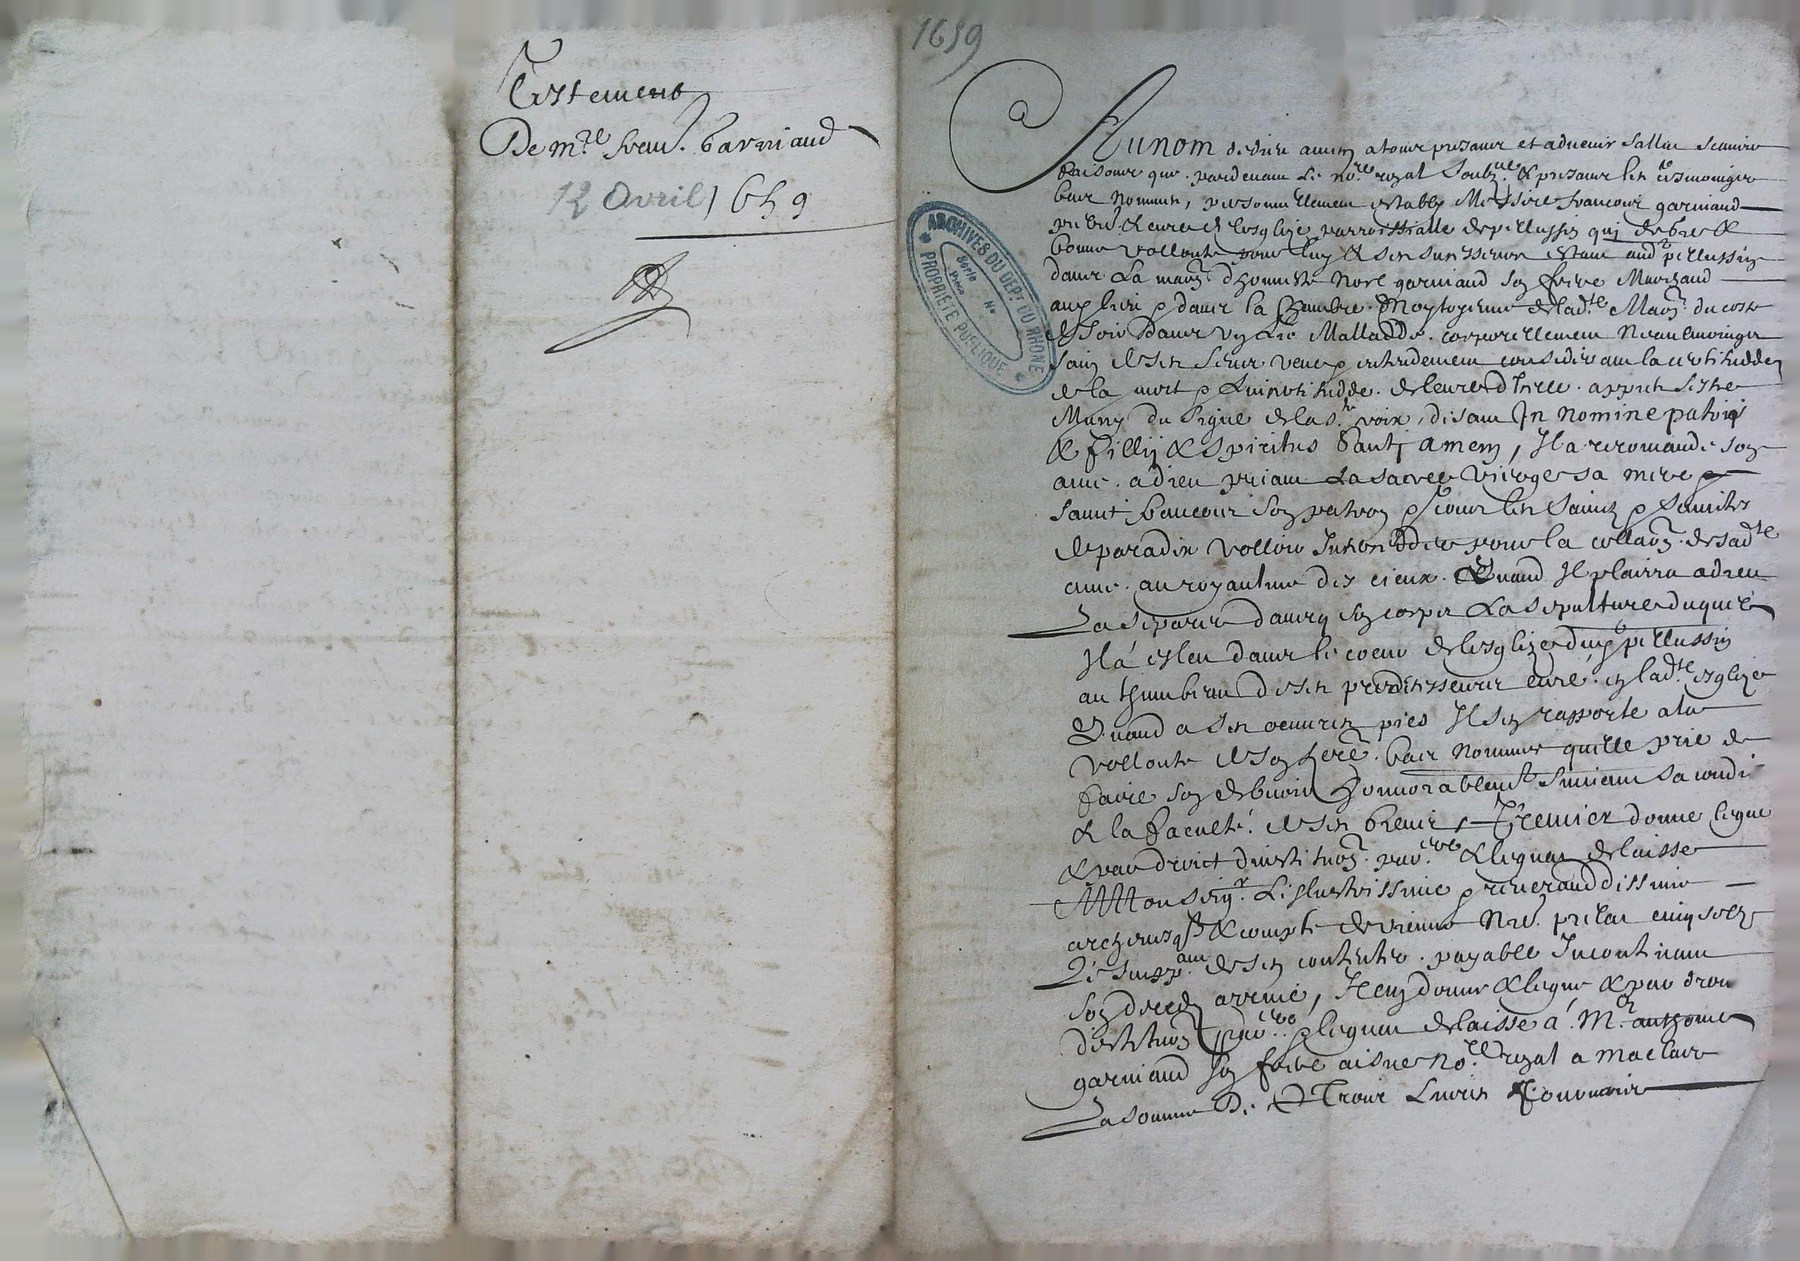 Testement
De m.re Fran. garniaud
12 Avril 1659
1659
ARCHIVES DU DEPt DU RHONE
PROPRIETE PUBLIQUE
Série
Pièce
No
Au nom de dieu amen a tous presans et advenir
que par devant le no.re royal soubz.né & presans les tesmoings
bas nommes, personnellement estably Messire francois garniaud
curé de lesglize parroissialle de pellussin qui de gre &
bonne vollonte pour luy & ses estant aud. pellussin
dans la mais. dhonneste noel garniaud son frere Marchand
aud. lieu & dans la chambre Moytoyenne de lad.te Mais. du coste
de soir dans un lict Mallade corporellement neantmoings
sain de ses sens veue & entendement considerant la certitudde
de la mort & lincertitudde de leure dicelle appres sestre
Muny du signe de la s.te croix, disant In nomine patris
& fillij & spiritus santj amen, Il a recomandé son
ame a dieu priant La sacree vierge sa mere &
saint francois son patron & tous les saints & saintes
de paradix volloir Interceder pour la collaon. de sad.te
ame au royaulme des cieux Quand Il plairra a dieu
La separer davecq son corps La sepulture duquel
Il a esleu dans le coeur de lesglize dud. pellussin
au thumbeau de ses predecesseurs curé en lad.te esglize
Quand a ses oeuvres pies Il sen rapporte a la
vollonte de son here. bas nommee quille prie de
faire son honnorablem.t suivant sa condi.
& la faculté de ses biens, Premier donne legue
& par droict dinstituon. par.re & leguat delaisse
A Monseig.r Lillustrissime & reveranddissime
archevesq. & compte de vienne Nre. prelat cinq solz
de ses contente payable Incontinant
son deceds arrivé, Item donne & legue & par droit
distituon par.re & leguat delaisse a M.e anthoine
garniaud son frere aisne no.re royal a maclas
La somme De Trois Livres